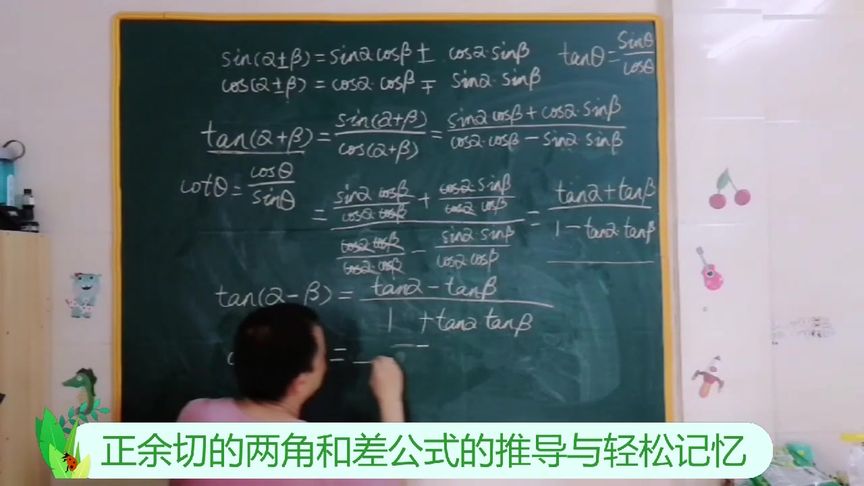 sin(α±β)=sinα cosβ ± cosα·sinβ
tanθ=sinθ/cosθ
cos(α±β)=cosα·cosβ ∓ sinα·sinβ
tan(α+β)=sin(α+β)/cos(α+β)=(sinα cosβ+cosα·sinβ)/(cosα·cosβ-sinα·sinβ)
cotθ=cosθ/sinθ
=(sinα cosβ/cosα·cosβ + cosα sinβ/cosα cosβ)/(cosα cosβ/cosα·cosβ - sinα sinβ/cosα cosβ)=(tanα+tanβ)/(1-tanα·tanβ)
tan(α-β)=(tanα-tanβ)/(1+tanα tanβ)
c =
正余切的两角和差公式的推导与轻松记忆